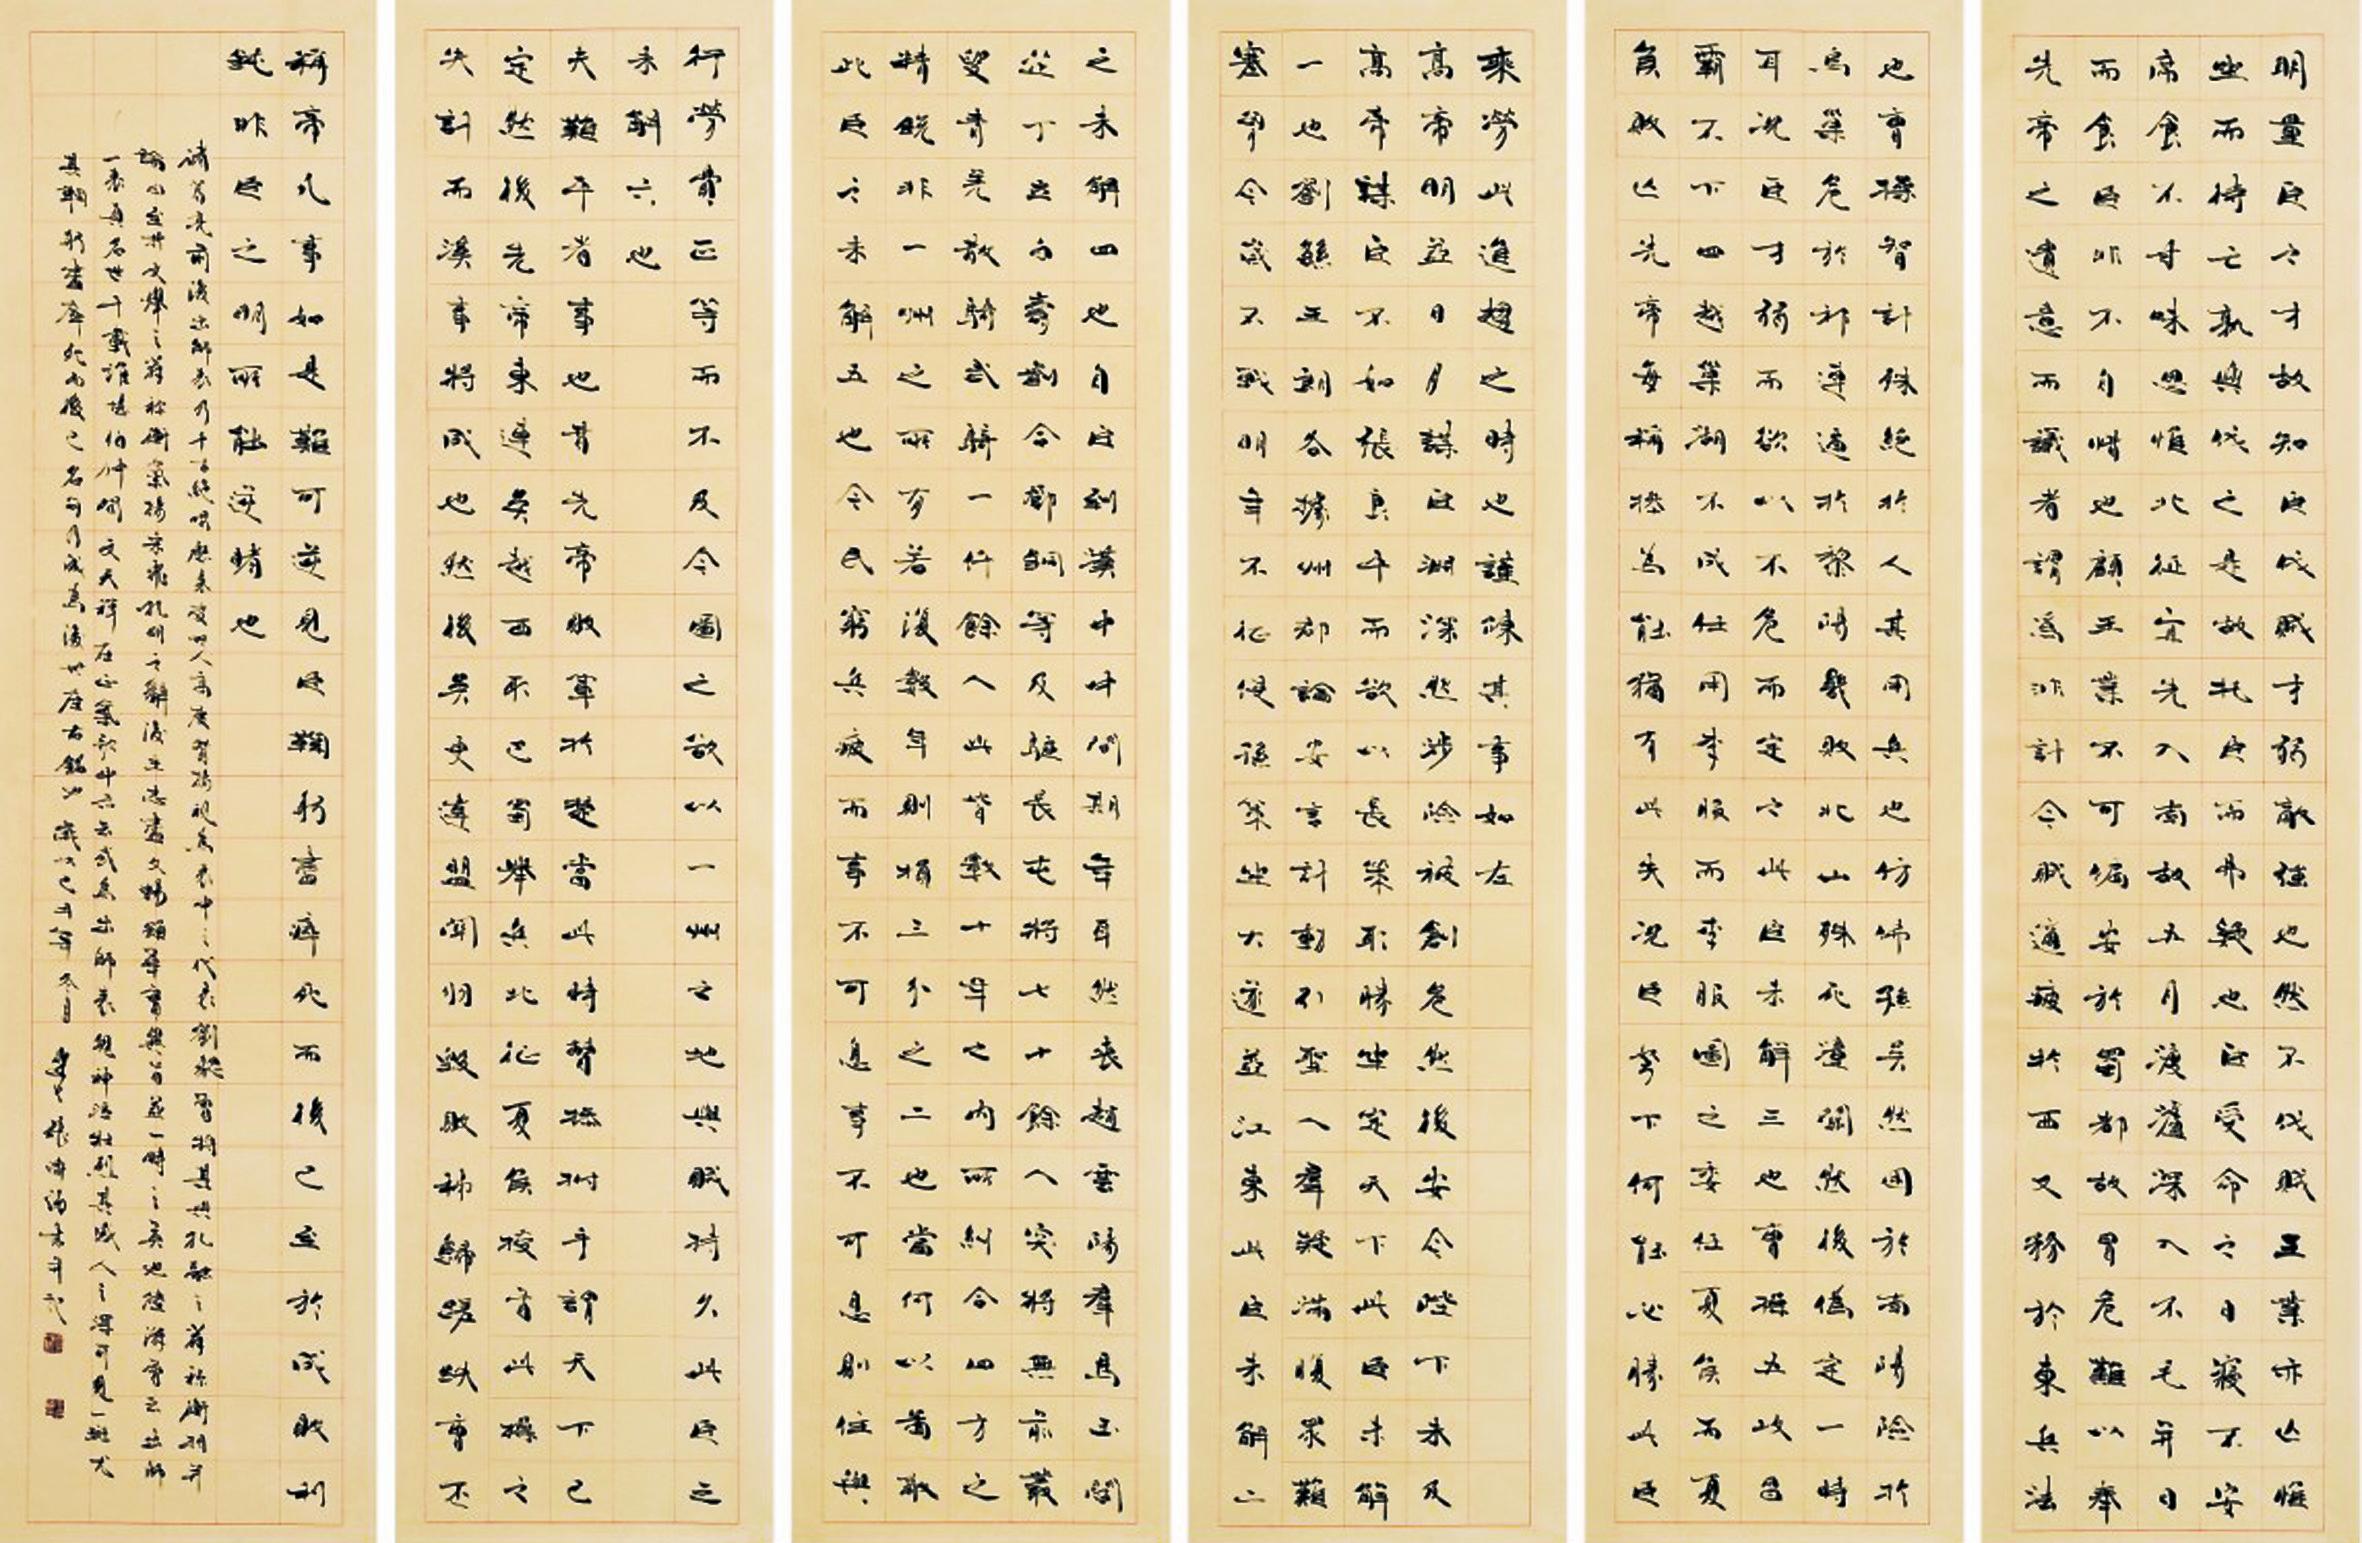 明量臣之才故知臣伐賊才弱敵強也然不伐賊王業亦亡惟
坐而待亡孰與伐之是故託臣而弗疑也臣受命之日寢不安
席食不甘味思惟北征宜先入南故五月渡瀘深入不毛并日
而食臣非不自惜也顧王業不可偏安於蜀都故冒危難以奉
先帝之遺意而議者謂為非計今賊適疲於西又務於東兵法
乘勞此進趨之時也謹陳其事如左
高帝明並日月謀臣淵深然涉險被創危然後安今陛下未及
高帝謀臣不如張良平而欲以長策取勝坐定天下此臣未解
一也劉繇王朗各據州郡論安言計動引聖人群疑滿腹眾難
塞胸今歲不戰明年不征使孫策坐大遂並江東此臣未解二
也曹操智計殊絕於人其用兵也仿佛孫吳然困於南陽險於
烏巢危於祁連逼於黎陽幾敗北山殊死潼關然後偽定一時
耳況臣才弱而欲以不危而定之此臣未解三也曹操五攻昌
霸不下四越巢湖不成任用李服而李服圖之委任夏侯而夏
侯敗亡先帝每稱操為能猶有此失況臣駑下何能必勝此臣
之未解四也自臣到漢中中間期年耳然喪趙雲陽群馬玉閻
從丁立白壽劉合鄧銅等及驅長屯將七十餘人突將無前叢
叟青羌散騎武騎一仟餘人此皆數十年之內所糾合四方之
精銳非一州之所有若復數年則損三分之二也當何以圖敵
此臣之未解五也今民窮兵疲而事不可息事不可息則住與
行勞費正等而不及今圖之欲以一州之地與賊持久此臣之
未解六也
夫難平者事也昔先帝敗軍於楚當此時曹操拊手謂天下已
定然後先帝東連吳越西取巴蜀舉兵北征夏侯授首此操之
失計而漢事將成也然後吳更違盟關羽毀敗秭歸蹉跌曹丕
稱帝凡事如是難可逆見臣鞠躬盡瘁死而後已至於成敗利
鈍非臣之明所能逆睹也
諸葛亮前後出師表乃千古絕唱歷來被世人高度贊揚視為表中之代表劉勰曾將其與孔融之薦祢衡相并
論曰至若文舉之薦祢衡氣揚采飛孔明之辭後主志盡文暢雖華實異旨並一時之英也陸游曾云出師
一表真名世千載誰堪伯仲間文天祥在正氣歌中亦云或為出師表鬼神泣壯烈其感人之深可見一斑尤
其鞠躬盡瘁死而後已名句乃成為後世座右銘也歲次己丑年冬月 書并記